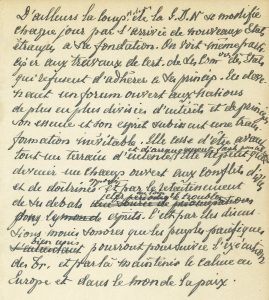 D'ailleurs la composition de la S.D.N se modifie
chaque jour par l'arrivée de nouveaux Etats
étrangers à sa fondation. On voit même parti-
ciper aux travaux de cert. de ses com des Etats
qui refusent d'adhérer à ses princip. Ses
un forum ouvert aux nations
de plus en plus divisées d'intérêts et de principes
son essence et son esprit subissent une trans
formation inévitable. Elle cesse d'être avant
tout un terrain d'entente et
devenir un champ ouvert aux conflits d'idées
et de doctrines et par le retentissement
de ses débats
esprits. C'est par les discus
sions moins sonores que les peuples pacifiques
pourront poursuivre l'exécution
des tr. et par là maintenir le calme en
Europe et dans le monde la paix.